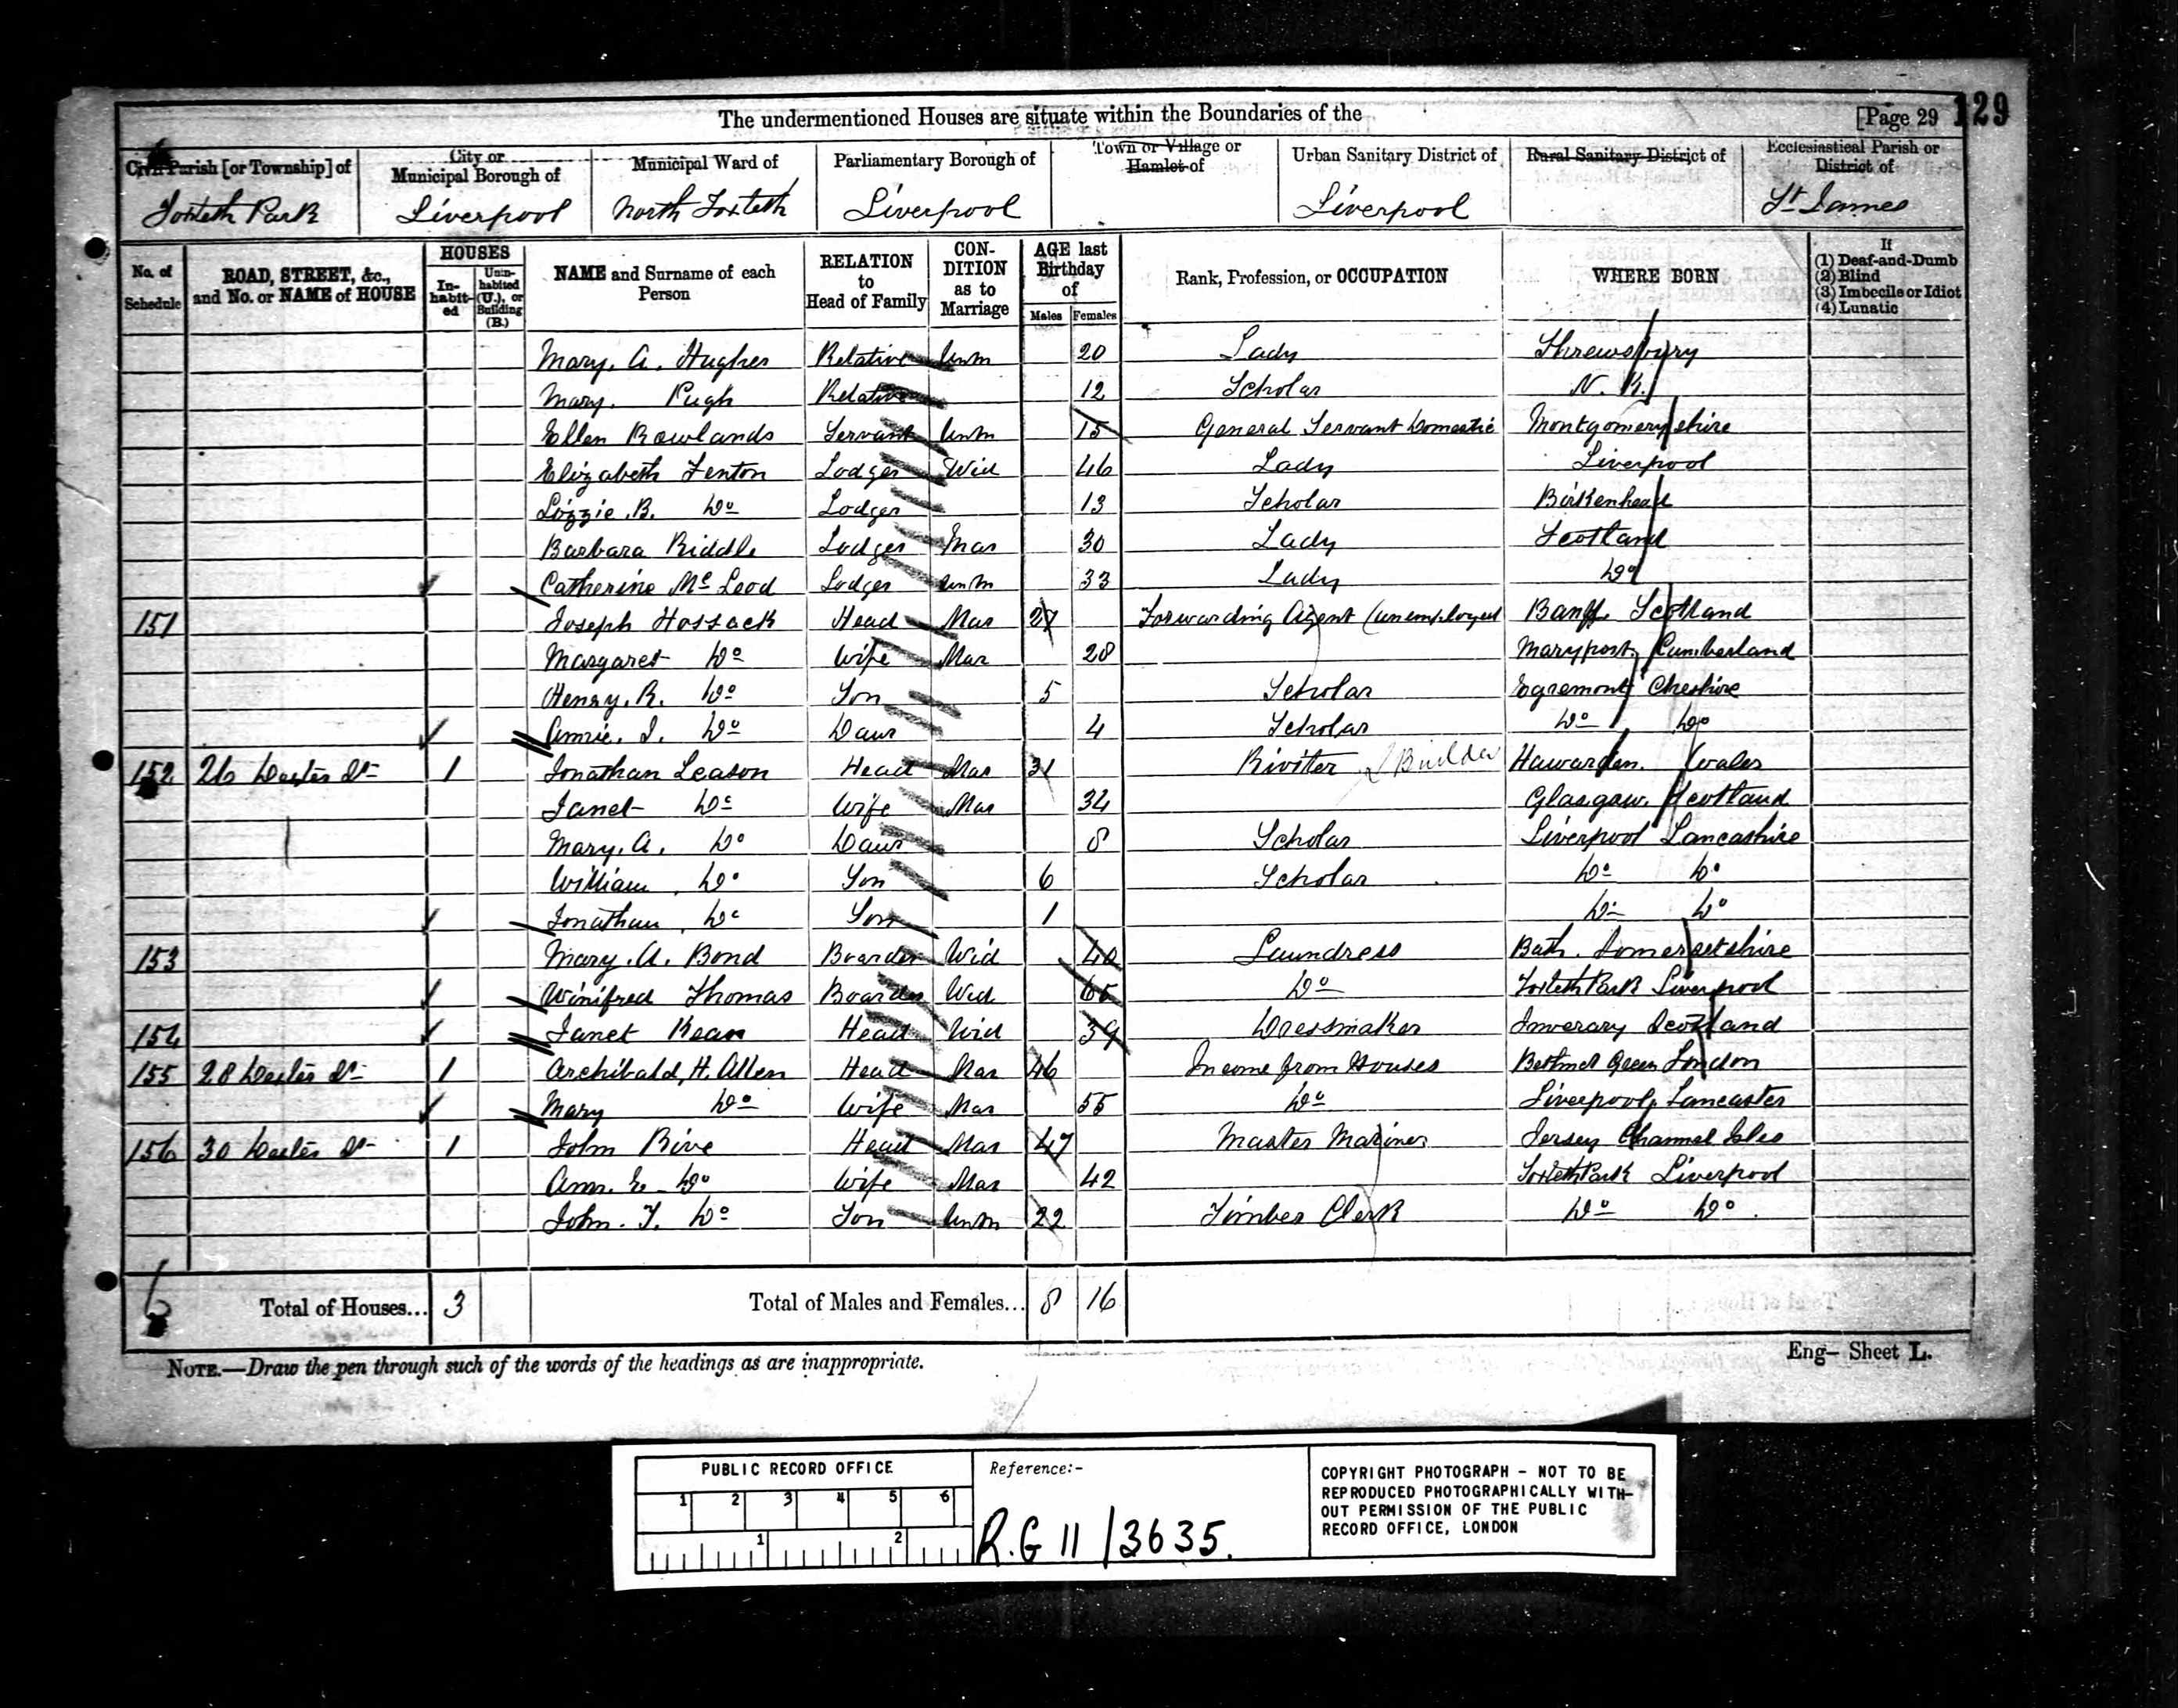 The undermentioned Houses are situate within the Boundaries of the [Page 29 129
Civil Parish [or Township] of City or Municipal Borough of Municipal Ward of Parliamentary Borough of Town or Village or Hamlet of Urban Sanitary District of Rural Sanitary District of Ecclesiastical Parish or District of
Toxteth Park Liverpool North Toxteth Liverpool Liverpool St James
No. of Schedule ROAD, STREET, &c., and No. or NAME of HOUSE HOUSES In-habit-ed Unin-habited (U.), or Building (B.) NAME and Surname of each Person RELATION to Head of Family CON-DITION as to Marriage AGE last Birthday of Males Females Rank, Profession, or OCCUPATION WHERE BORN If (1) Deaf-and-Dumb (2) Blind (3) Imbecile or Idiot (4) Lunatic
Mary. A. Hughes Relative Unm 20 Lady Shrewsbury
Mary. Pugh Relative 12 Scholar N. K.
Ellen Rowlands Servant Unm 15 General Servant Domestic Montgomeryshire
Elizabeth Fenton Lodger Wid 46 Lady Liverpool
Lizzie. B. Do Lodger 13 Scholar Birkenhead
Barbara Riddle Lodger Mar 30 Lady Scotland
Catherine Mc Leod Lodger Unm 33 Lady Do
151 Joseph Hossack Head Mar 27 Forwarding Agent (unemployed Banff Scotland
Margaret Do Wife Mar 28 Maryport, Cumberland
Henry. R. Do Son 5 Scholar Egremont Cheshire
Annie. I. Do Daur 4 Scholar Do Do
152 26 St 1 Jonathan Leason Head Mar 31 Riviter Builder Hawarden. Wales
Janet Do Wife Mar 34 Glasgow. Scotland
Mary. A. Do Daur 8 Scholar Liverpool Lancashire
William. Do Son 6 Scholar Do Do
Jonathan. Do Son 1 Do Do
153 Mary. A. Bond Boarder Wid 40 Laundress Bath. Somersetshire
Winifred Thomas Boarder Wid 65 Do Toxteth Park Liverpool
154 Janet Kean Head Wid 39 Dressmaker Inverary Scotland
155 28 St 1 Archibald, H. Allen Head Mar 46 Income from Houses Bethnel Green London
Mary Do Wife Mar 55 Do Liverpool, Lancaster
156 30 St 1 John Rive Head Mar 47 Master Mariner Jersey Channel Isles
Ann. E. Do Wife Mar 42 Toxteth Park Liverpool
John. T. Do Son Unm 22 Timber Clerk Do Do
Total of Houses... 3 Total of Males and Females... 8 16
NOTE.—Draw the pen through such of the words of the headings as are inappropriate. Eng– Sheet L.
PUBLIC RECORD OFFICE
1 2 3 4 5 6
1 2
Reference:-
R.G 11 / 3635.
COPYRIGHT PHOTOGRAPH – NOT TO BE
REPRODUCED PHOTOGRAPHICALLY WITH-
OUT PERMISSION OF THE PUBLIC
RECORD OFFICE, LONDON